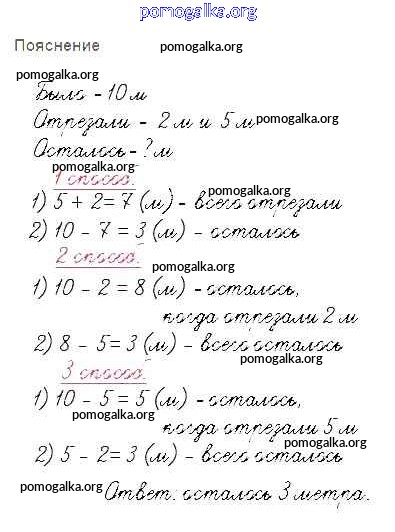 pomogalka.org
Пояснение pomogalka.org
pomogalka.org
Было - 10 м
Отрезали - 2 м и 5 м pomogalka.org
Осталось - ? м
pomogalka.org
1 способ.
pomogalka.org
1) 5 + 2 = 7 (м) - всего отрезали
2) 10 - 7 = 3 (м) - осталось
2 способ.
pomogalka.org
1) 10 - 2 = 8 (м) - осталось,
когда отрезали 2 м
2) 8 - 5 = 3 (м) - всего осталось
pomogalka.org
3 способ.
1) 10 - 5 = 5 (м) - осталось,
pomogalka.org
когда отрезали 5 м
pomogalka.org
2) 5 - 2 = 3 (м) - всего осталось
pomogalka.org Ответ: осталось 3 метра.